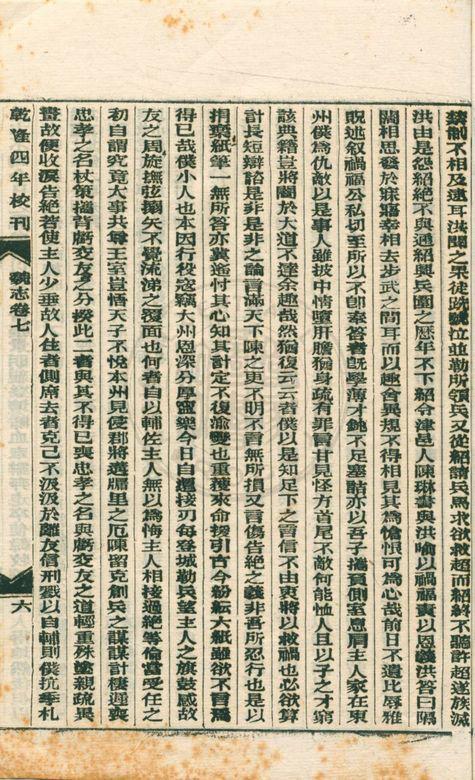 禁制不相及逮耳洪聞之果徒跣號泣並勒所領兵又從紹請兵馬求欲救超而紹終不聽許超遂族滅
洪由是怨紹絕不與通紹興兵圍之歷年不下紹令洪邑人陳琳書與洪喻以禍福責以恩義洪答曰隔
闊相思發於寤寐幸相去步武之間耳而以趣舍異規不得相見其為愴恨可為心哉前日不遺比辱雅
貺述叙禍福公私切至所以不卽奉答者旣學薄才鈍不足塞詰亦以吾子攜負側室息肩主人家在東
州僕為仇敵以是事人雖披中情墮肝膽猶身疏有罪言甘見怪方首尾不救何能恤人且以子之才窮
該典籍豈將闇於大道不達余趣哉然猶復云云者僕以是知足下之言信不由衷將以救禍也必欲算
計長短辯諮是非是非之論言滿天下陳之更不明不言無所損又言傷告絕之義非吾所忍行也是以
捐棄紙筆一無所答亦冀遙忖其心知其計定不復渝變也重獲來命援引古今紛紜六紙雖欲不言焉
得已哉僕小人也本因行役寇竊大州恩深分厚寧樂今日自還接刃每登城勒兵望主人之旗鼓感故
友之周旋撫弦搦矢不覺流涕之覆面也何者自以輔佐主人無以為悔主人相接過絕等倫當受任之
初自謂究竟大事共尊王室豈悟天子不悅本州見侵郡將遘牖里之厄陳留克創兵之謀謀計棲遲喪
忠孝之名杖策攜背虧交友之分揆此二者與其不得已喪忠孝之名與虧交友之道輕重殊塗親疏異
畫故便收淚告絕若使主人少垂故人住者側席去者克己不汲汲於離友信刑戮以自輔則僕抗季札
乾隆四年校刊 魏志卷七 六